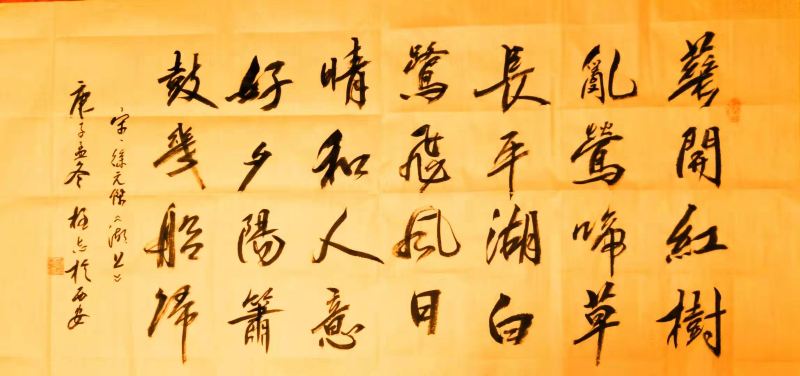 華開紅樹
亂鶯啼草
長平湖白
鷺飛風日
晴和人意
好夕陽簫
鼓幾船歸
宋·徐元傑《湖上》
庚子孟冬 於西安